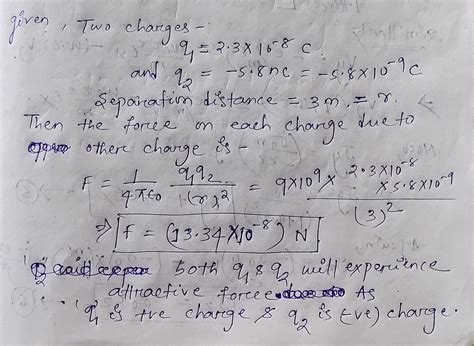 given, Two charges -
q₁ = 2.3×10⁻⁸ C.
and q₂ = -5.8nc = -5.8×10⁻⁹C
Separation distance = 3m. = r.
Then the force on each charge due to
other charge is -
F = 1/4πε₀ q₁q₂/(r)² = 9×10⁹× 2.3×10⁻⁸ ×5.8×10⁻⁹/(3)²
⇒ F = (13.34×10⁻⁸) N
both q₁ & q₂ will experience
attractive force. As
q₁ is +ve charge & q₂ is (-ve) charge.